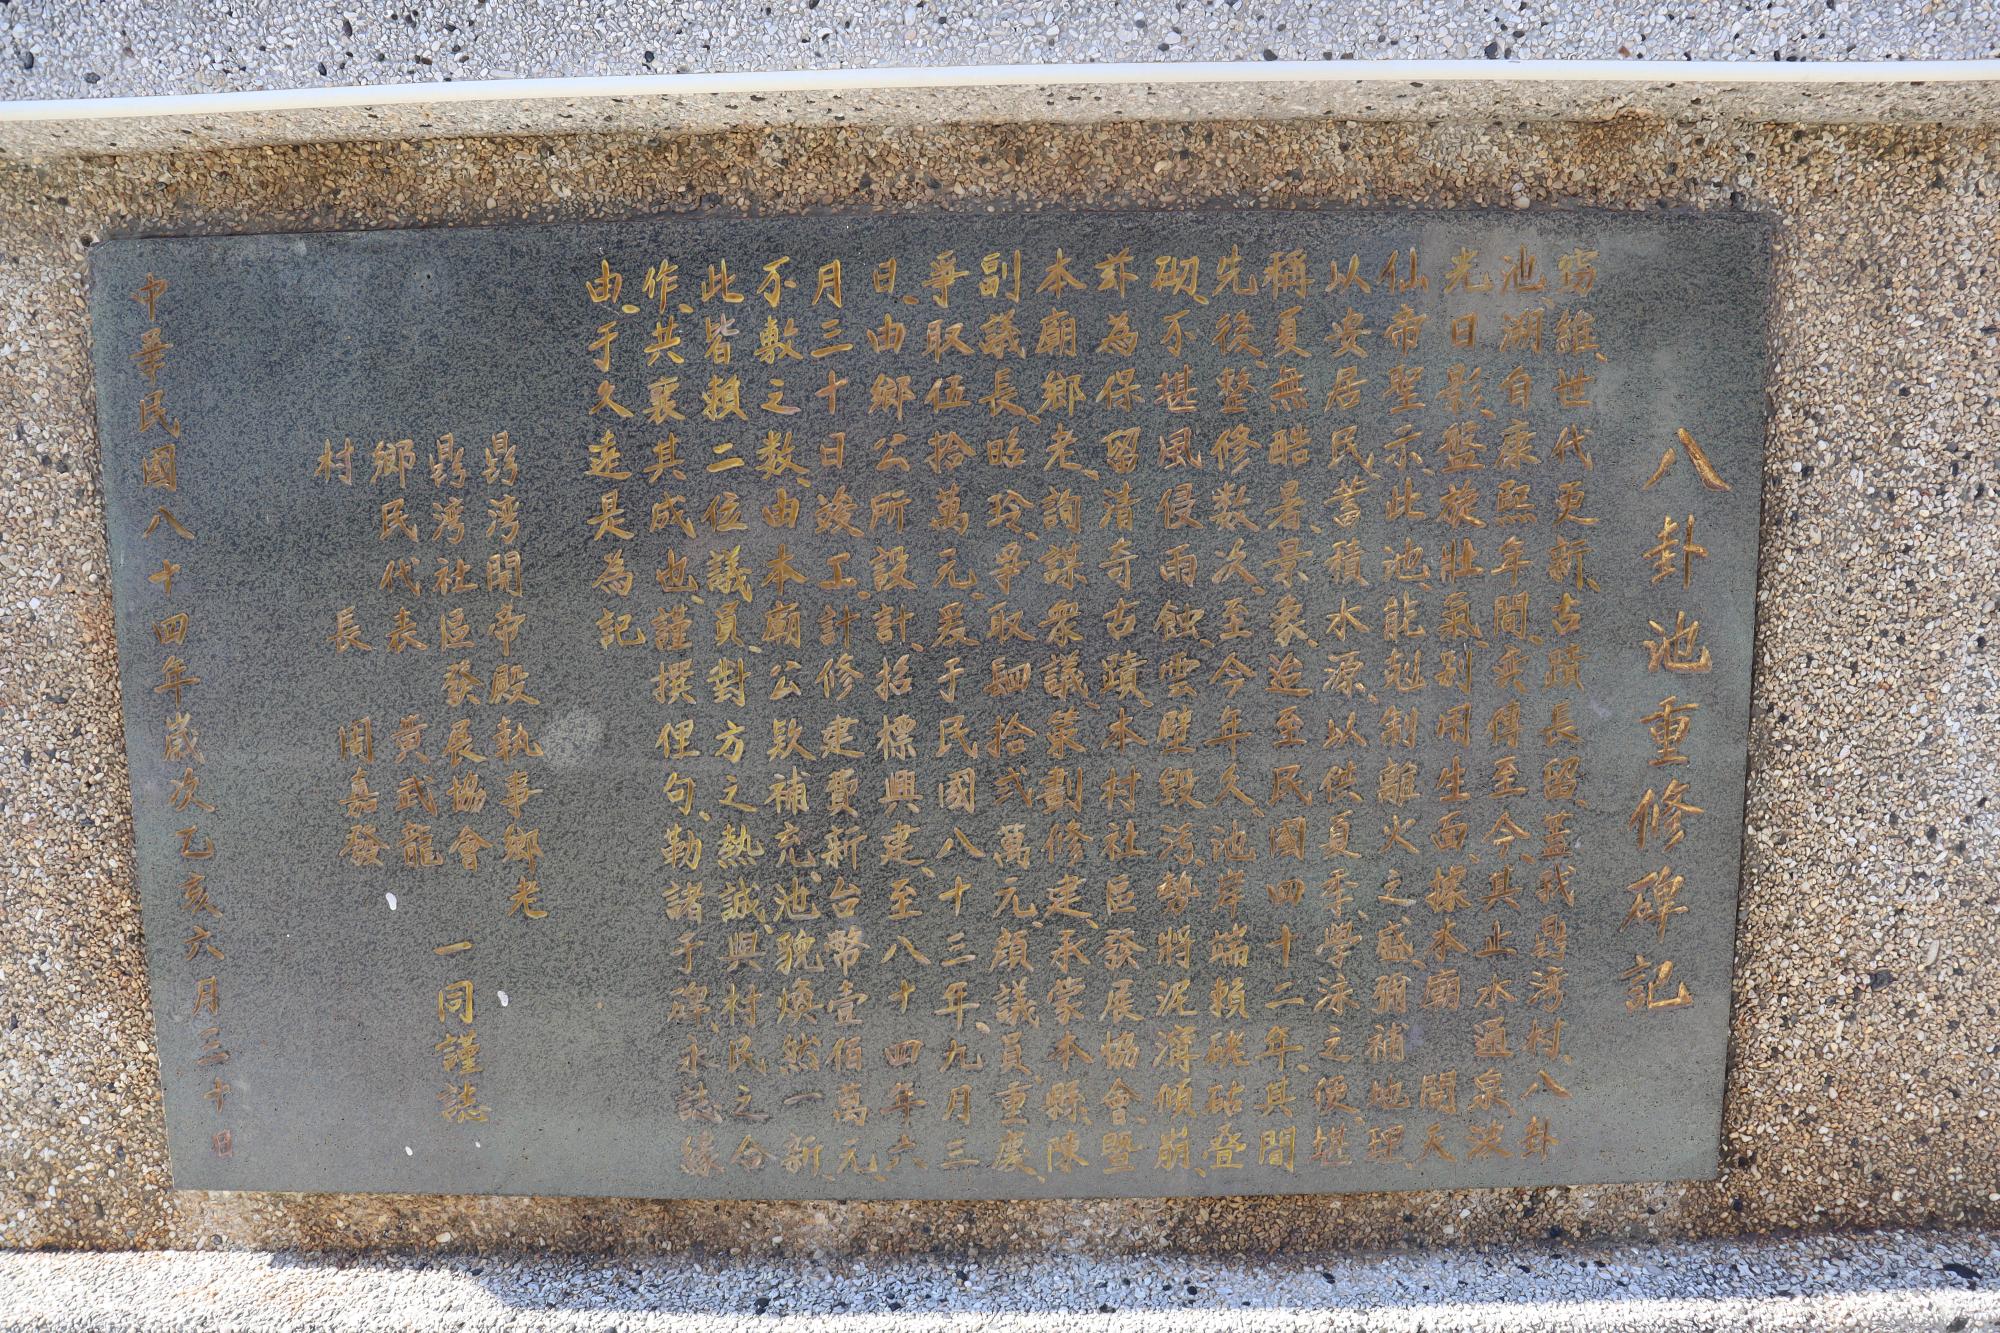 八卦池重修碑記
窃維、世代更新、古蹟長留、蓋我鼎湾村、八卦
池、溯自康熙年間、奕傳至今、其止水通泉、波
光日影、盤旋壯氣、別開生面、據本廟 開天
仙帝聖示、此池、能剋制離火之盛、彌補地理、
以安居民、蓄積水源、以供夏季、學泳之便、堪
稱夏無酷暑、景象、迨至民國四十二年、其間
先後、整修数次、至今年久、池岸端賴硓砧叠
砌、不堪風侵雨蝕、雲壁毀污、勢將泥濘傾崩、
茲為保留清奇古蹟、本村社區發展協會、暨
本廟鄉老、詢謀眾議、策劃修建、承蒙本縣、陳
副議長、昭玲、爭取肆拾弍萬元、顏議員、重慶、
爭取伍拾萬元、爰于民國八十三年、九月三
日、由鄉公所設計、招標興建、至八十四年六
月三十日竣工、計修建費新台幣壹佰萬元、
不敷之数、由本廟公欵補充、池貌煥然一新、
此皆賴二位議員、對方之熱誠、與村民之合
作、共襄其成也、謹撰俚句、勒諸于碑、永誌緣
由、于久遠是為記
鼎湾開帝殿執事鄉老
鼎湾社區發展協會
鄉民代表 黃武龍
村長 周嘉發
一同謹誌
中華民國八十四年歲次乙亥六月三十日